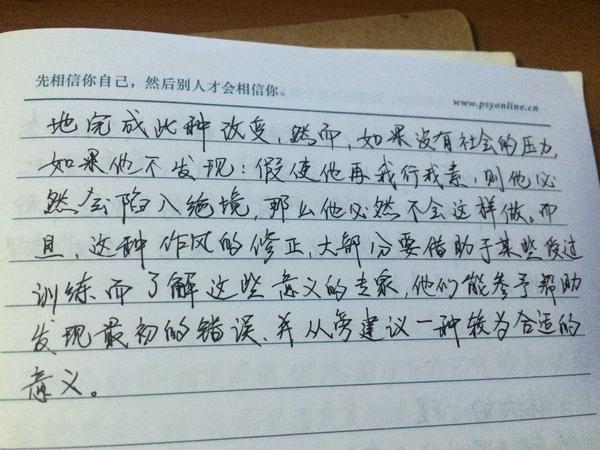 先相信你自己，然后别人才会相信你。
www.psyonline.cn
地完成此种改变，然而，如果没有社会的压力，
如果他不发现：假使他再我行我素，则他必
然会陷入绝境，那么他必然不会这样做。而
且，这种作风的修正，大部分要借助于某些受过
训练而了解这些意义的专家，他们能参予帮助
发现最初的错误，并从旁建议一种较为合适的
意义。